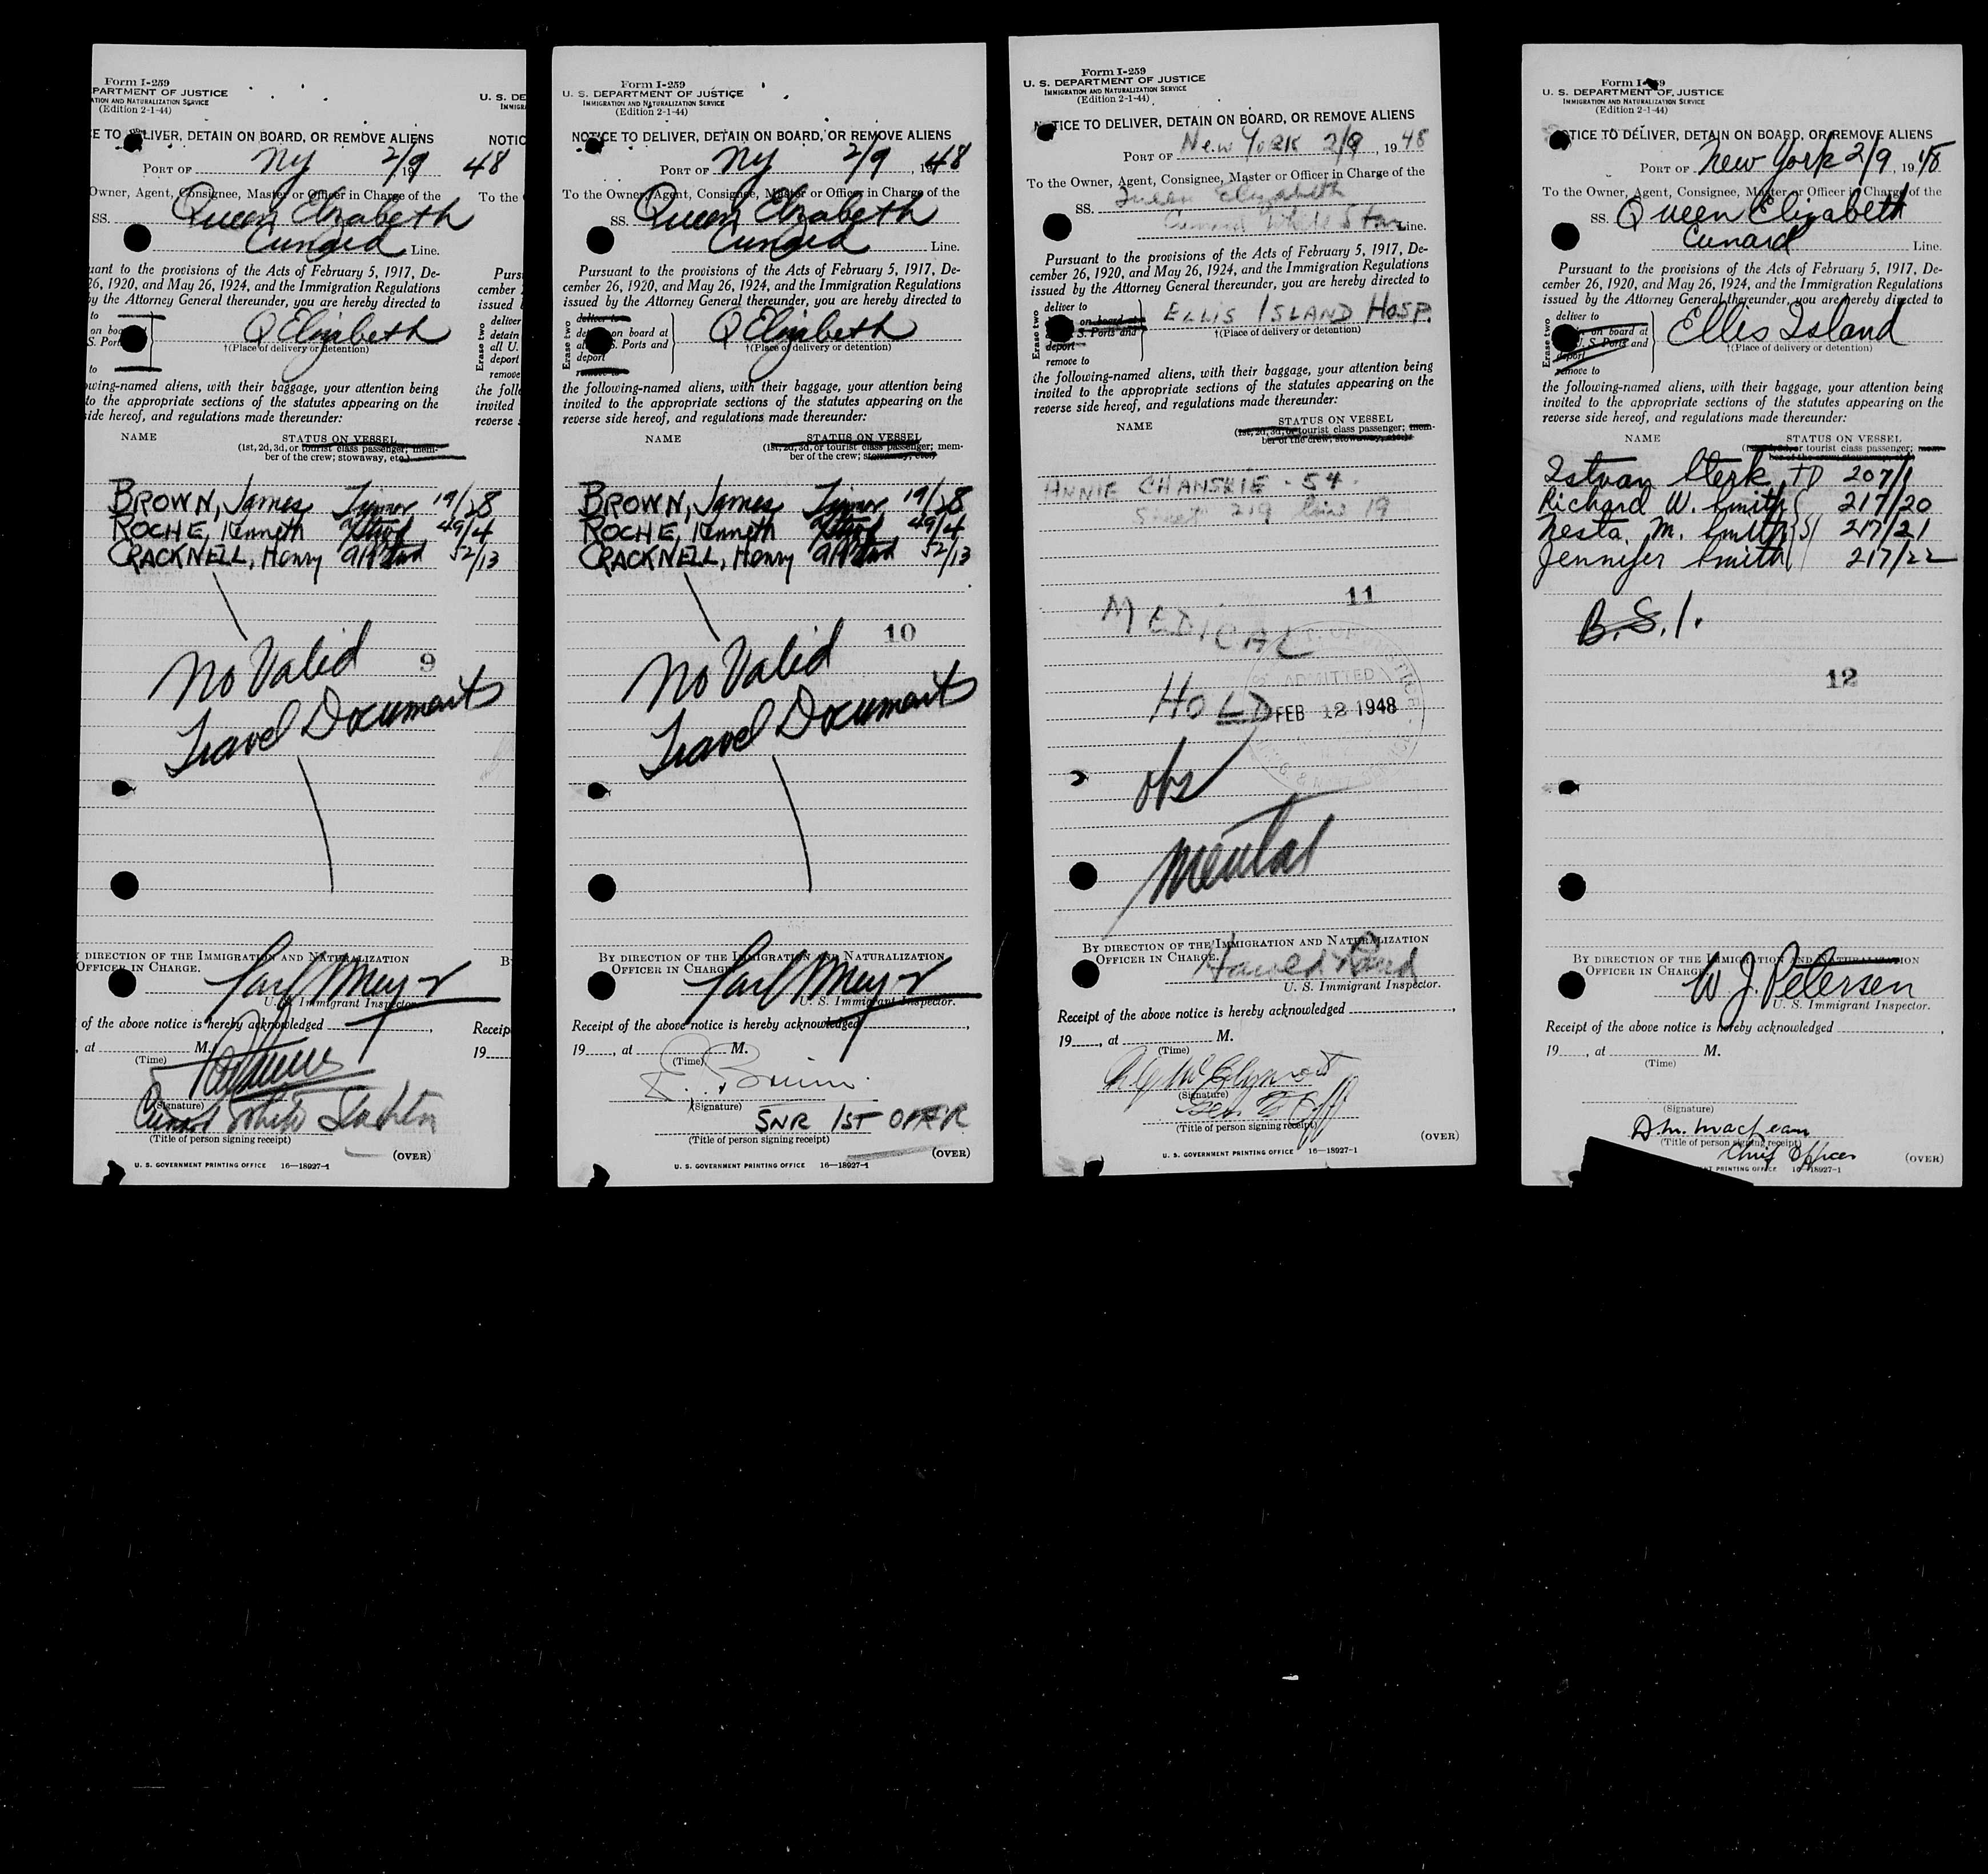 Form I-259
PARTMENT OF JUSTICE
ATION AND NATURALIZATION SERVICE
(Edition 2-1-44)
E TO DELIVER, DETAIN ON BOARD, OR REMOVE ALIENS
PORT OF NY 2/9 19 48
Owner, Agent, Consignee, Master or Officer in Charge of the
SS. Queen Elizabeth
Cunard Line.
uant to the provisions of the Acts of February 5, 1917, De-
26, 1920, and May 26, 1924, and the Immigration Regulations
by the Attorney General thereunder, you are hereby directed to
to
on boa
S. Port
to
Q Elizabeth
†(Place of delivery or detention)
owing-named aliens, with their baggage, your attention being
to the appropriate sections of the statutes appearing on the
side hereof, and regulations made thereunder:
NAME STATUS ON VESSEL
(1st, 2d, 3d, or tourist class passenger; mem-
ber of the crew; stowaway, etc.)
BROWN, James 19/28
ROCHE, Kenneth 49/4
CRACKNELL, Henry 52/13
No Valid
9
Travel Documents
DIRECTION OF THE IMMIGRATION AND NATURALIZATION
OFFICER IN CHARGE.
U. S. Immigrant Inspector.
of the above notice is hereby acknowledged
, at M.
(Time)
(Signature)
Cunard White Star
(Title of person signing receipt)
(OVER)
U. S. GOVERNMENT PRINTING OFFICE 16—18927-1
U. S. DE
IMMIGRA
NOTIC
To the
Pursu
cember
issued
Erase two
deliver
detain
all U.
deport
remove
the follo
invited
reverse s
B
Receip
19
Form I-259
U. S. DEPARTMENT OF JUSTICE
IMMIGRATION AND NATURALIZATION SERVICE
(Edition 2-1-44)
NOTICE TO DELIVER, DETAIN ON BOARD, OR REMOVE ALIENS
PORT OF NY 2/9, 1948
To the Owner, Agent, Consignee, Master or Officer in Charge of the
SS. Queen Elizabeth
Cunard Line.
Pursuant to the provisions of the Acts of February 5, 1917, De-
cember 26, 1920, and May 26, 1924, and the Immigration Regulations
issued by the Attorney General thereunder, you are hereby directed to
Erase two
deliver to
det on board at
al S. Ports and
deport
remove to
Q Elizabeth
†(Place of delivery or detention)
the following-named aliens, with their baggage, your attention being
invited to the appropriate sections of the statutes appearing on the
reverse side hereof, and regulations made thereunder:
NAME STATUS ON VESSEL
(1st, 2d, 3d, or tourist class passenger; mem-
ber of the crew; stowaway, etc.)
BROWN, James 19/28
ROCHE, Kenneth 49/4
CRACKNELL, Henry 52/13
10
No Valid
Travel Documents
BY DIRECTION OF THE IMMIGRATION AND NATURALIZATION
OFFICER IN CHARGE
U. S. Immigrant Inspector.
Receipt of the above notice is hereby acknowledged
19 , at M.
(Time)
(Signature)
SNR 1ST OFFR
(Title of person signing receipt)
(OVER)
U. S. GOVERNMENT PRINTING OFFICE 16—18927-1
Form I-259
U. S. DEPARTMENT OF JUSTICE
IMMIGRATION AND NATURALIZATION SERVICE
(Edition 2-1-44)
NOTICE TO DELIVER, DETAIN ON BOARD, OR REMOVE ALIENS
PORT OF New York 2/9, 1948
To the Owner, Agent, Consignee, Master or Officer in Charge of the
SS. Queen Elizabeth
Cunard White Star Line.
Pursuant to the provisions of the Acts of February 5, 1917, De-
cember 26, 1920, and May 26, 1924, and the Immigration Regulations
issued by the Attorney General thereunder, you are hereby directed to
Erase two
deliver to
on board at
S. Ports and
deport
remove to
ELLIS ISLAND HOSP.
†(Place of delivery or detention)
the following-named aliens, with their baggage, your attention being
invited to the appropriate sections of the statutes appearing on the
reverse side hereof, and regulations made thereunder:
NAME STATUS ON VESSEL
(1st, 2d, 3d, or tourist class passenger; mem-
ber of the crew; stowaway, etc.)
ANNIE CHANSKIE - 54.
Sheet 219 line 19
11
MEDICAL
ADMITTED
HOLD FEB 12 1948
obs
mental
BY DIRECTION OF THE IMMIGRATION AND NATURALIZATION
OFFICER IN CHARGE.
U. S. Immigrant Inspector.
Receipt of the above notice is hereby acknowledged
19 , at M.
(Time)
(Signature)
(Title of person signing receipt)
(OVER)
U. S. GOVERNMENT PRINTING OFFICE 16—18927-1
Form I-259
U. S. DEPARTMENT OF JUSTICE
IMMIGRATION AND NATURALIZATION SERVICE
(Edition 2-1-44)
NOTICE TO DELIVER, DETAIN ON BOARD, OR REMOVE ALIENS
PORT OF New York 2/9, 1948
To the Owner, Agent, Consignee, Master or Officer in Charge of the
SS. Queen Elizabeth
Cunard Line.
Pursuant to the provisions of the Acts of February 5, 1917, De-
cember 26, 1920, and May 26, 1924, and the Immigration Regulations
issued by the Attorney General thereunder, you are hereby directed to
Erase two
deliver to
on board at
U. S. Ports and
deport
remove to
Ellis Island
†(Place of delivery or detention)
the following-named aliens, with their baggage, your attention being
invited to the appropriate sections of the statutes appearing on the
reverse side hereof, and regulations made thereunder:
NAME STATUS ON VESSEL
or tourist class passenger; mem-
Istvan Sterk TD 207/1
Richard W. Smith 217/20
Nesta. M. Smith 217/21
Jennifer Smith 217/22
B.S.I.
12
BY DIRECTION OF THE IMMIGRATION AND NATURALIZATION
OFFICER IN CHARGE
W. J. Petersen
U. S. Immigrant Inspector.
Receipt of the above notice is hereby acknowledged
19 , at M.
(Time)
(Signature)
D.M. MacLean
(Title of person signing receipt)
Chief Officer
(OVER)
T PRINTING OFFICE 16—18927-1